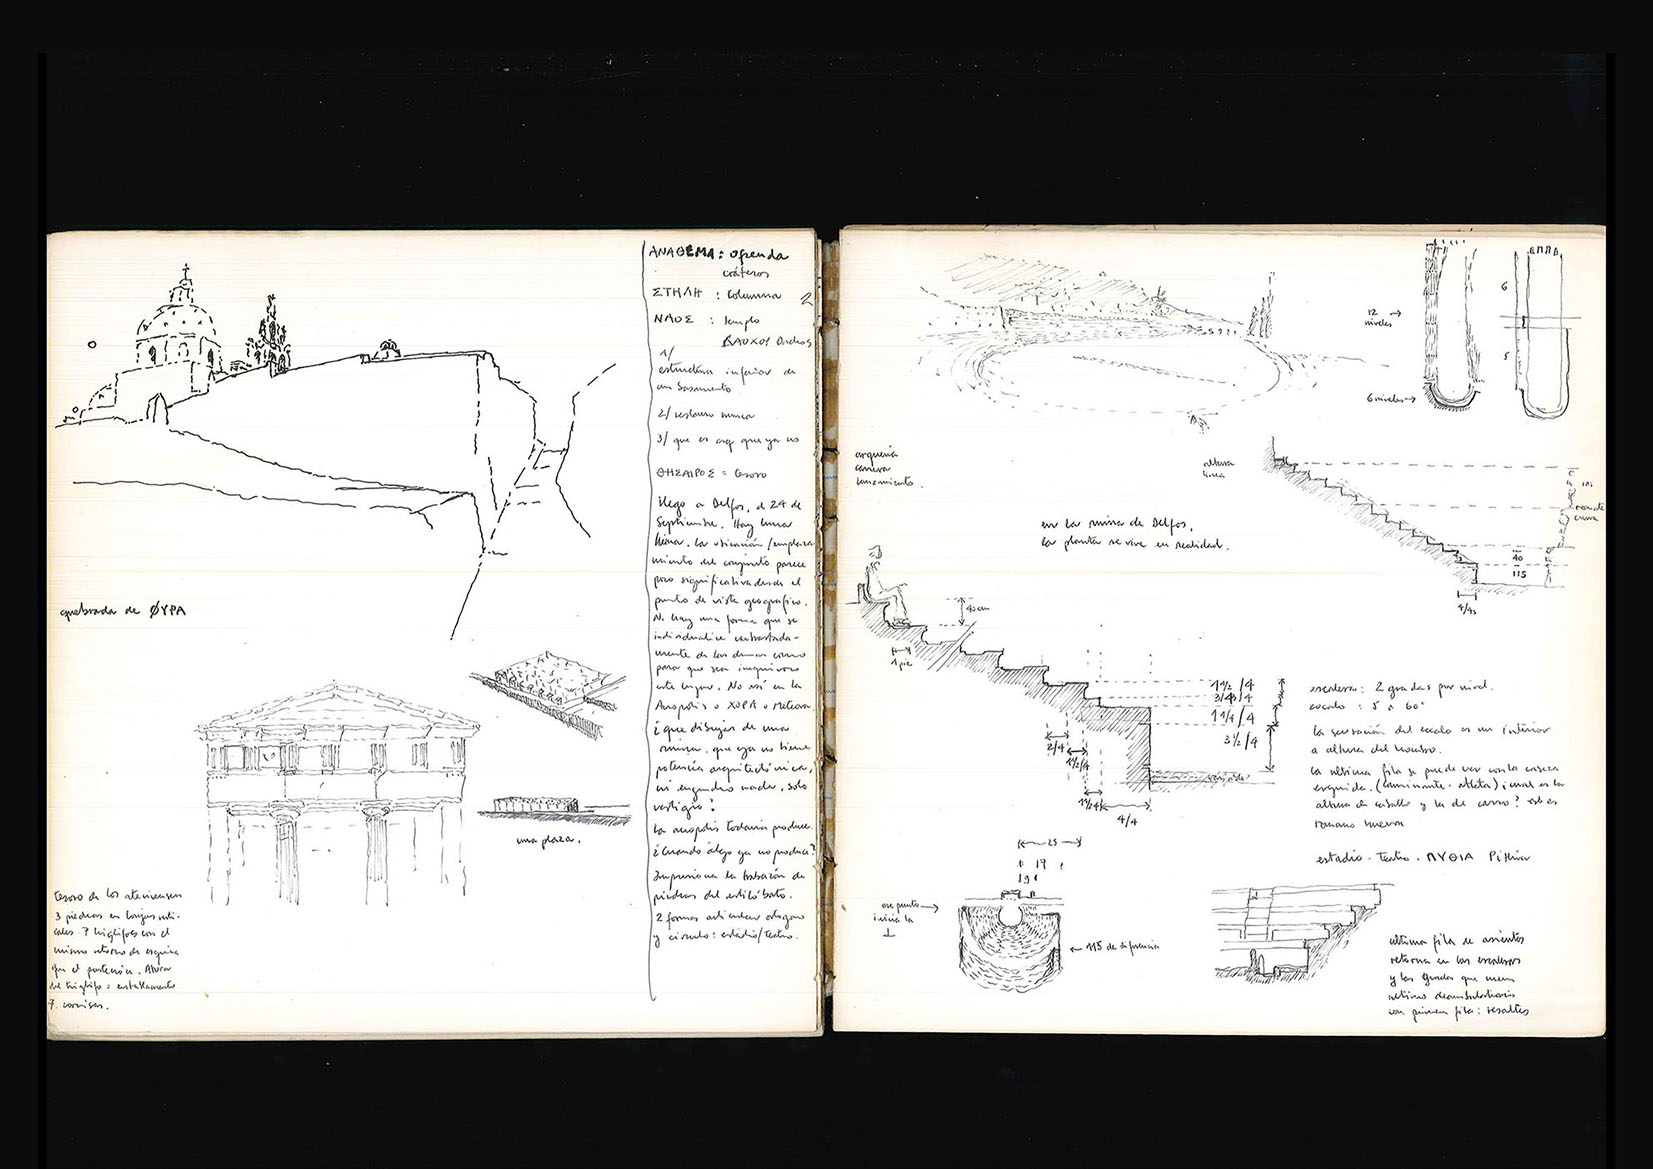 quebrada de ΦΥΡΑ
una plaza.
tesoro de los atenienses
3 piedras en
7 triglifos con el
mismo retorno de esquina
que el Partenón. Altura
del triglifo = entablamento
7 cornisas.
ΑΝΑΘΕΜΑ: Ofrenda
cráteros
ΣΤΗΛΗ : Columna 2
ΝΑΟΣ : templo
1/
estructura inferior de
un basamento
2/ restauro nunca
3/ que es arq que ya no
= tesoro
llego a Delfos, el 24 de
Septiembre. Hay luna
llena. La ubicación/emplaza-
miento del conjunto parece
poco significativa desde el
punto de vista geográfico.
N. hay una forma que se
individualice contrastada-
mente de las demas como
para que sea inequívoco
este lugar. No así en la
Acrópolis o ΧΟΡΑ o Meteora.
¿que dibujar de una
ruina, que ya no tiene
potencia arquitectónica,
ni engendra nada, solo
vestigio?
La acrópolis todavía produce.
¿Cuando algo ya no produce?
Impresiona la trabazón de
piedras del estilóbato.
2 formas articulan
y círculo: estadio/teatro.
12
niveles
6 niveles
6
5
carrera
lanzamiento.
altura
línea
en la ruina de Delfos,
la planta se vive en realidad.
40
115
4/4
40 cm
1 pie
1 1/2 /4
3/4
1 1/4 /4
3 1/2 /4
2/4
1 1/2/4
1 1/4
4/4
variable
escalera: 2 gradas por nivel.
zocalo : 5 a 60°
la sensación del zocalo es un interior
a altura del hombro.
la ultima fila se puede ver con la cabeza
erguida. (caminante - atleta) ¿cual es la
altura de caballo y la de carro? esto es
romano
estadio - Teatro - ΠΥΘΙΑ
25
19
19
ese punto
inicia la
⊥
115 de diferencia
ultima fila de asientos
retorna en las escaleras
y las gradas que unen
ultimo deambulatorio
con primera fila: resaltes